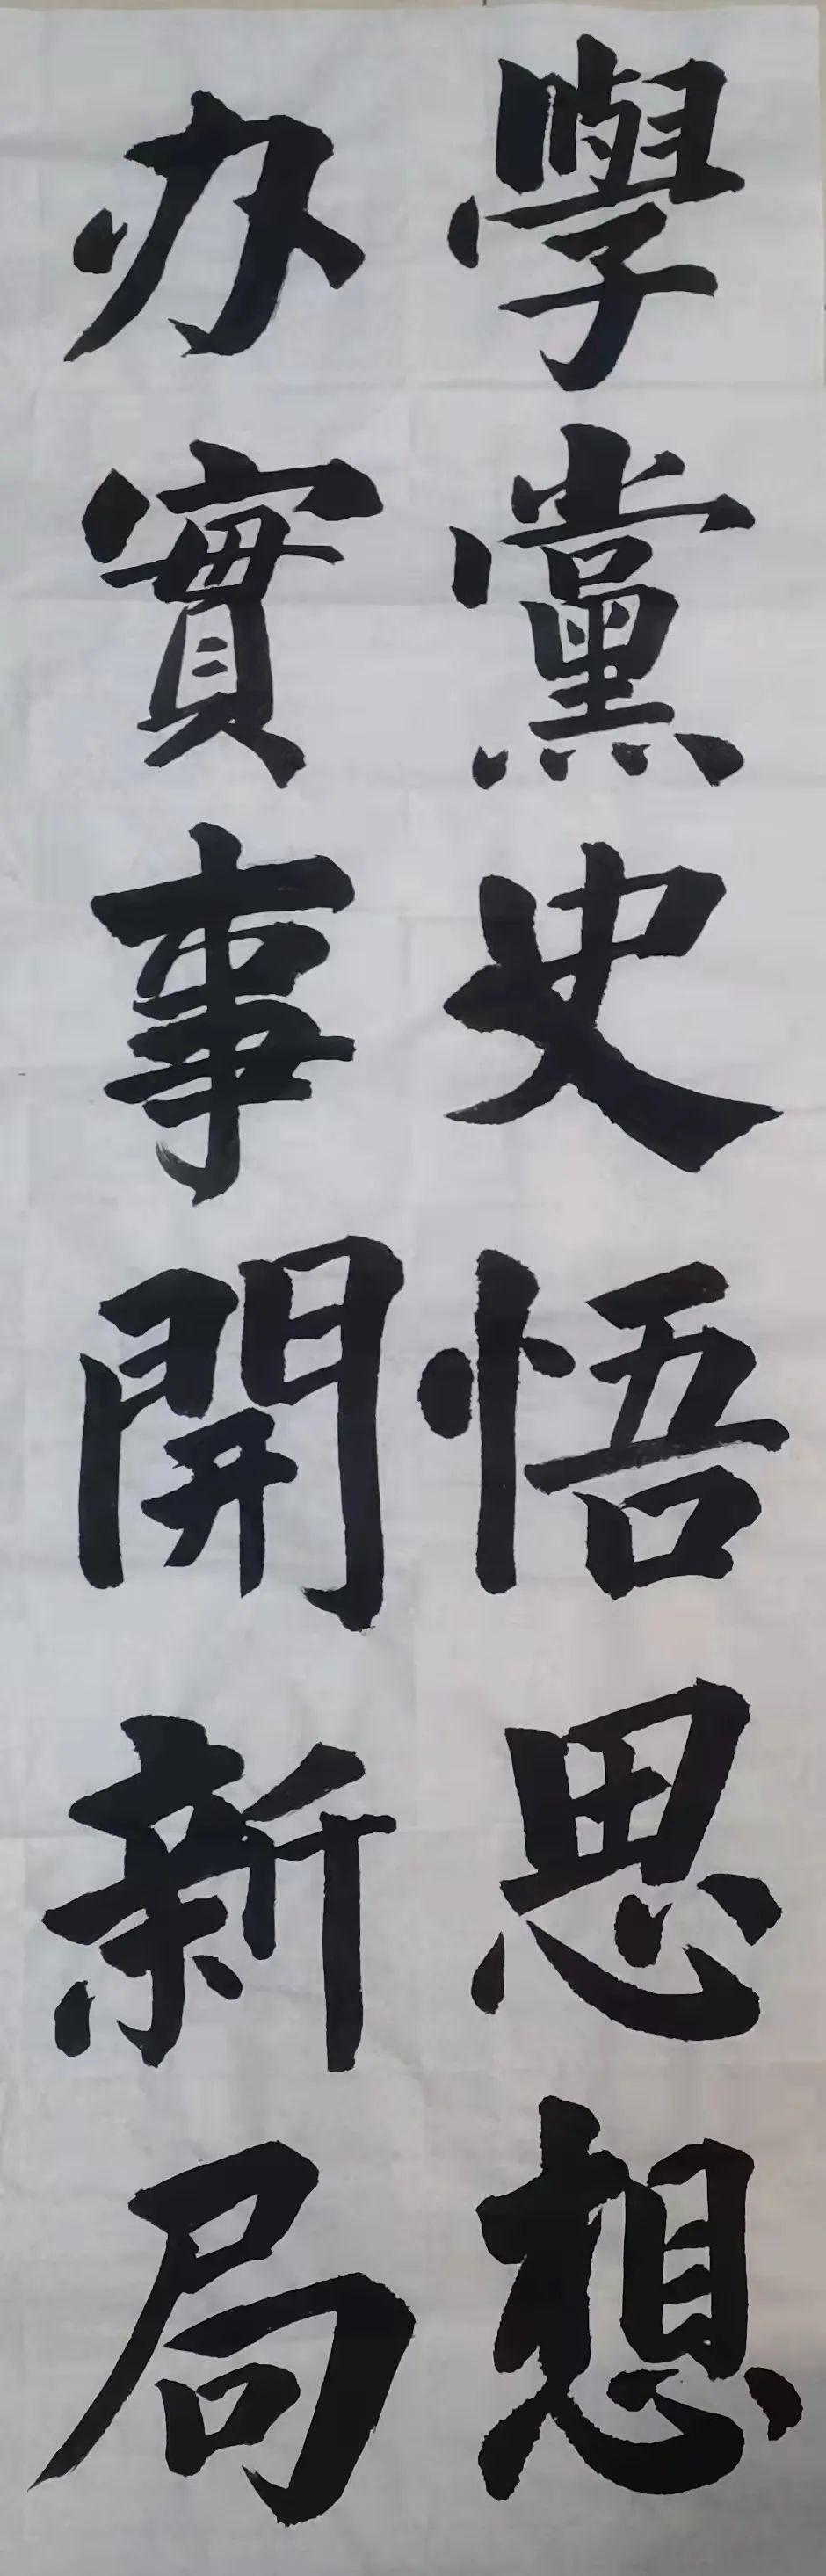 學黨史悟思想
办實事開新局